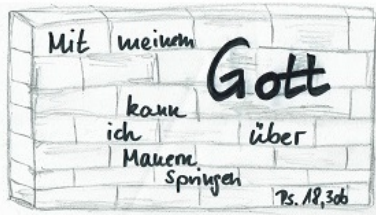 Mit meinem
Gott
kann
ich über
Mauern
springen
Ps. 18,30b